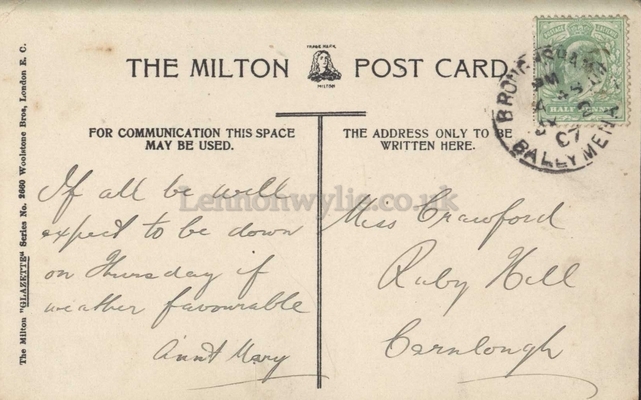 TRADE MARK
MILTON
THE MILTON POST CARD.
HALF PENNY
BROUGHSHANE
BALLYMENA
07
FOR COMMUNICATION THIS SPACE
MAY BE USED.
THE ADDRESS ONLY TO BE
WRITTEN HERE.
Lennonwylie.co.uk
If all be well
expect to be down
on Thursday if
weather favourable
Aunt Mary
Miss Crawford
Ruby Hill
Carnlough
The Milton "GLAZETTE" Series No. 2660 Woolstone Bros, London E. C.